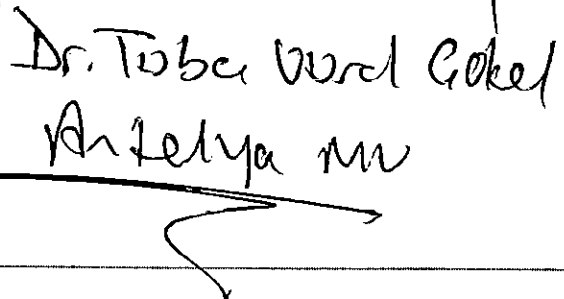 Dr. Tuba Vural Gökel
Antalya MV